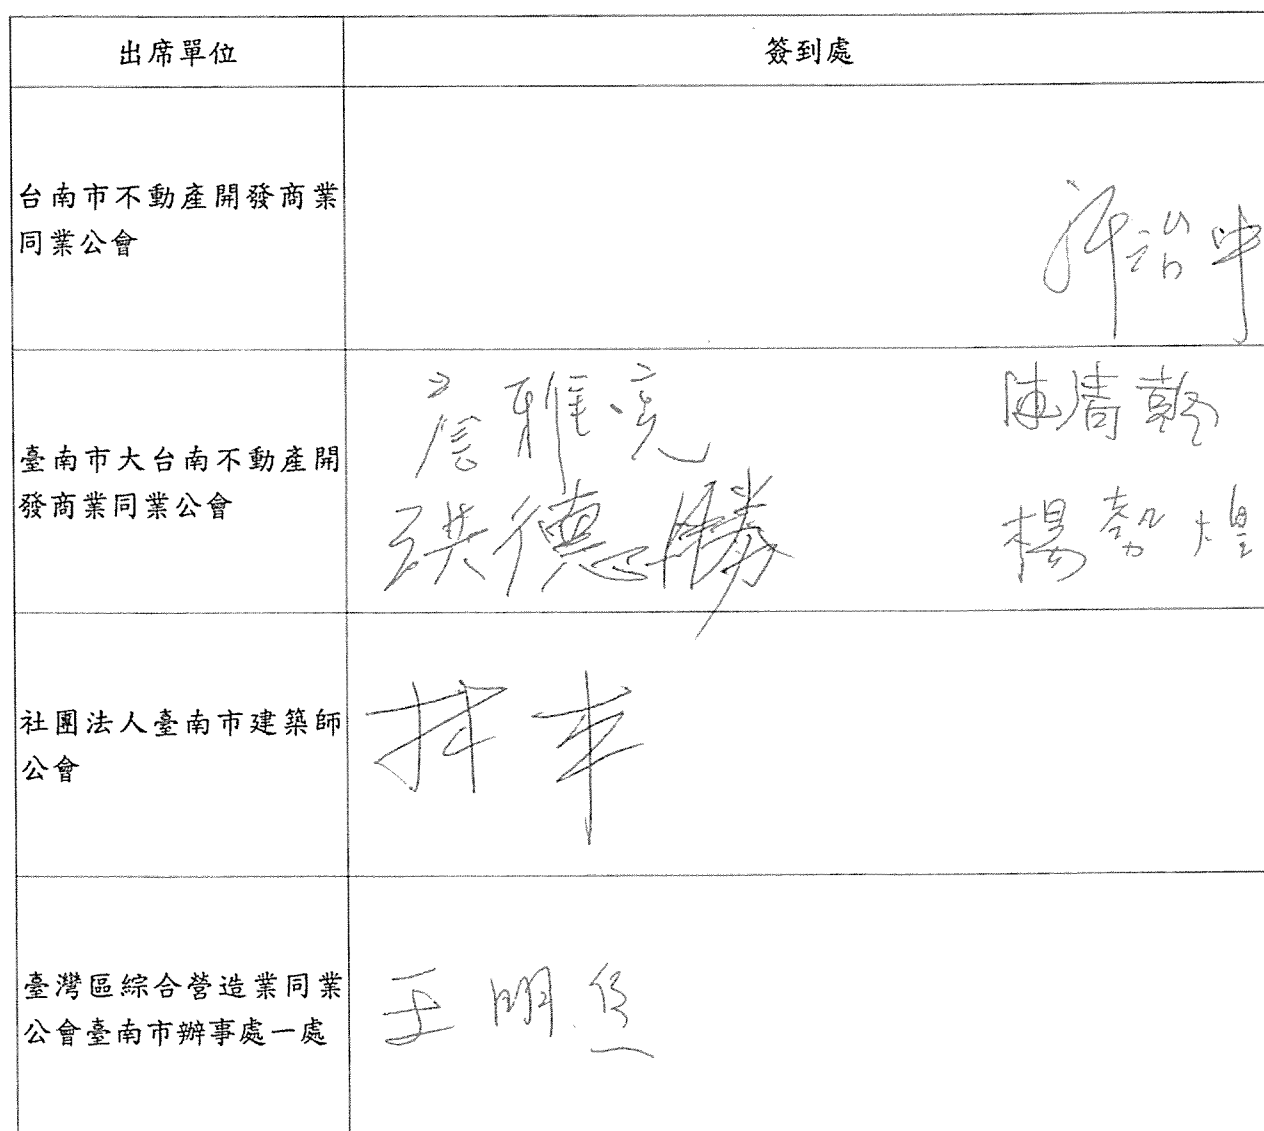 出席單位 簽到處
台南市不動產開發商業
同業公會
臺南市大台南不動產開
發商業同業公會
詹雅亮 陳清乾
洪德勝 楊勢煌
社團法人臺南市建築師
公會
臺灣區綜合營造業同業
公會臺南市辦事處一處
王明